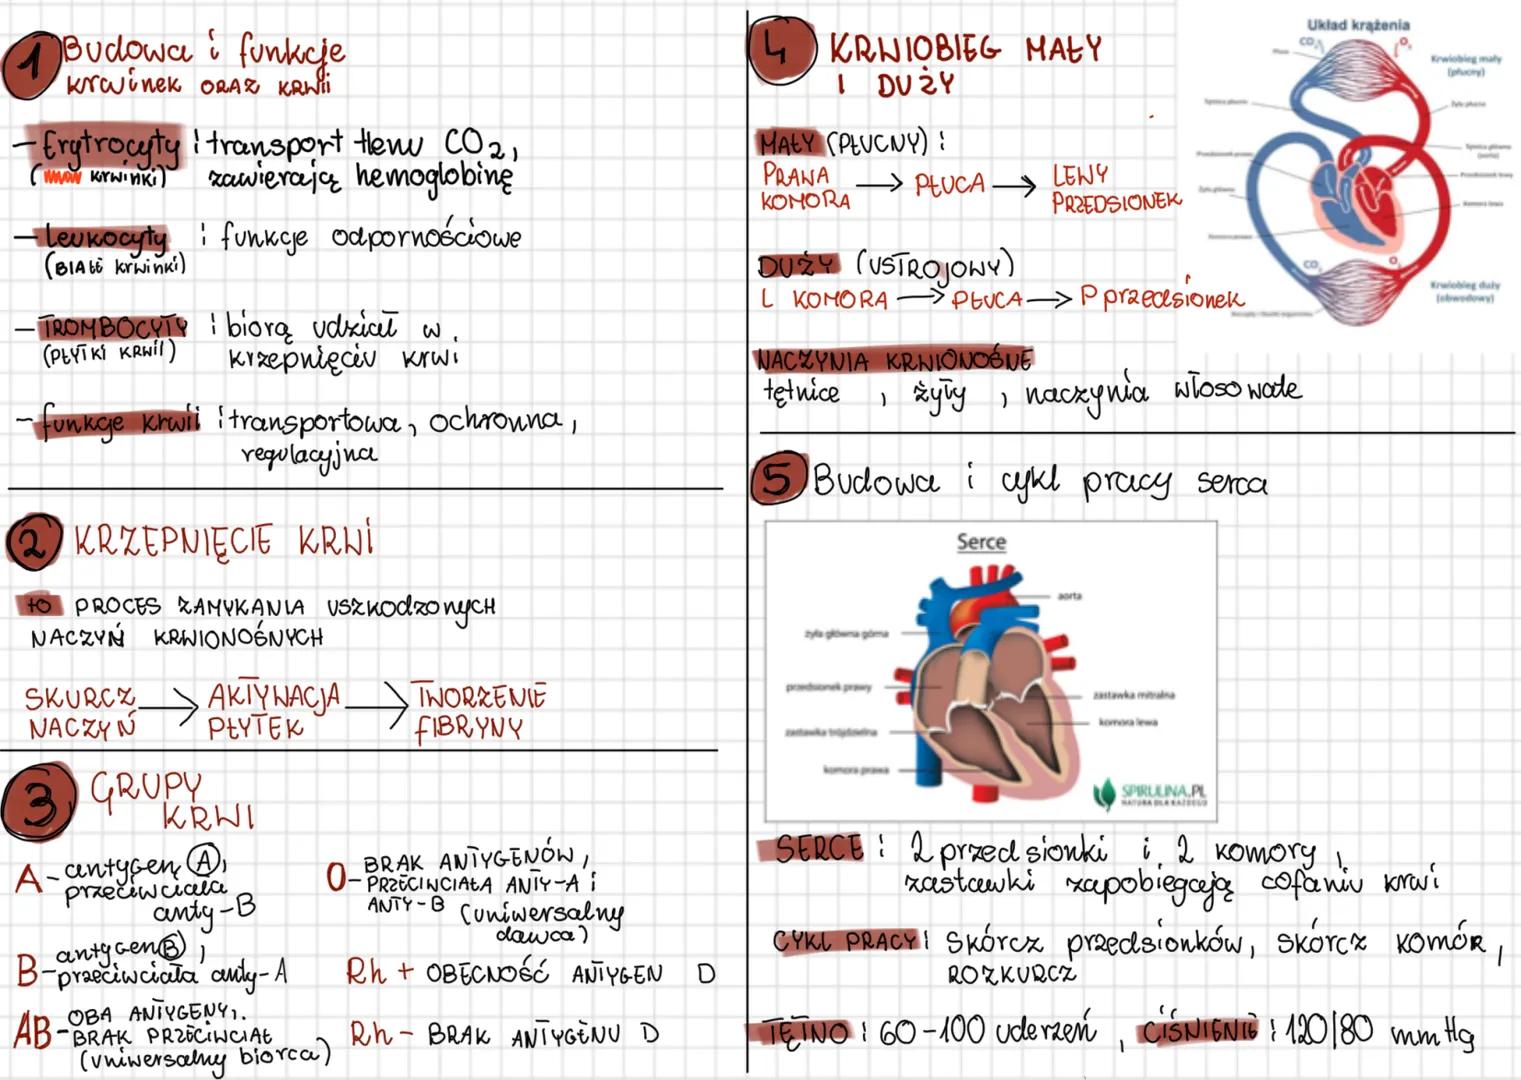 1 Budowa i funkcje
krwinek ORAZ KRWii
- Erytrocyty : transport tlenu CO2,
krwinki) zawierają hemoglobinę
- Leukocyty : funkcje odpornościowe
(BIAŁE krwinki)
- TROMBOCYTY : biorą udział w
(PŁYTKI KRWII) krzepnięciu krwi
- funkcje krwii : transportowa, ochronna,
regulacyjna
2 KRZEPNIĘCIE KRWI
to PROCES ZAMYKANIA USZKODZONYCH
NACZYŃ KRWIONOŚNYCH
SKURCZ NACZYŃ → AKTYWACJA PŁYTEK → TWORZENIE FIBRYNY
3 GRUPY
KRWI
A - antygen A,
przeciwciała
anty-B
B - antygen B,
przeciwciała anty-A
AB - OBA ANTYGENY,
BRAK PRZECIWCIAŁ
(uniwersalny biorca)
0 - BRAK ANTYGENÓW,
PRZECIWCIAŁA ANTY-A i
ANTY-B (uniwersalny
dawca)
Rh + OBECNOŚĆ ANTYGEN D
Rh - BRAK ANTYGENU D
4 KRWIOBIEG MAŁY
I DUŻY
MAŁY (PŁUCNY) :
PRAWA KOMORA → PŁUCA → LEWY PRZEDSIONEK
DUŻY (USTROJOWY)
L KOMORA → PŁUCA → P przedsionek
NACZYNIA KRWIONOŚNE
tętnice , żyły , naczynia włosowate
Układ krążenia
CO2
O2
Krwiobieg mały
(płucny)
CO2
O2
Krwiobieg duży
(obwodowy)
5 Budowa i cykl pracy serca
Serce
aorta
żyła główna górna
przedsionek prawy
zastawka mitralna
komora lewa
zastawka trójdzielna
komora prawa
SPIRULINA.PL
NATURA DLA KAŻDEGO
SERCE : 2 przedsionki i 2 komory,
zastawki zapobiegają cofaniu krwi
CYKL PRACY : Skórcz przedsionków, skórcz komór,
ROZKURCZ
TĘTNO : 60-100 uderzeń , CIŚNIENIE : 120/80 mmHg